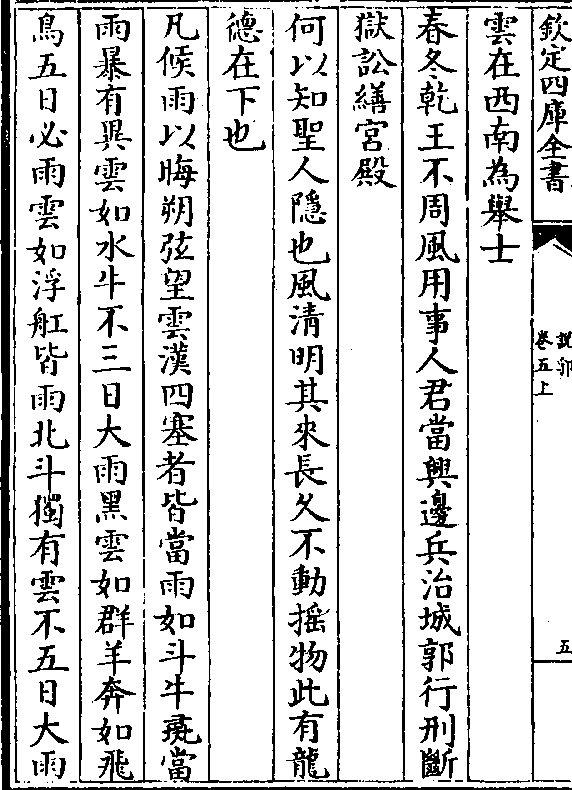 欽定四庫全書
說郛
卷五上
五
雲在西南為舉士
春冬乾王不周風用事人君當興邊兵治城郭行刑斷
獄訟繕宮殿
何以知聖人隱也風清明其來長久不動搖物此有龍
德在下也
凡候雨以晦朔弦望雲漢四塞者皆當雨如斗牛彘當
雨暴有異雲如水牛不三日大雨黑雲如群羊奔如飛
鳥五日必雨雲如浮舡皆雨北斗獨有雲不五日大雨